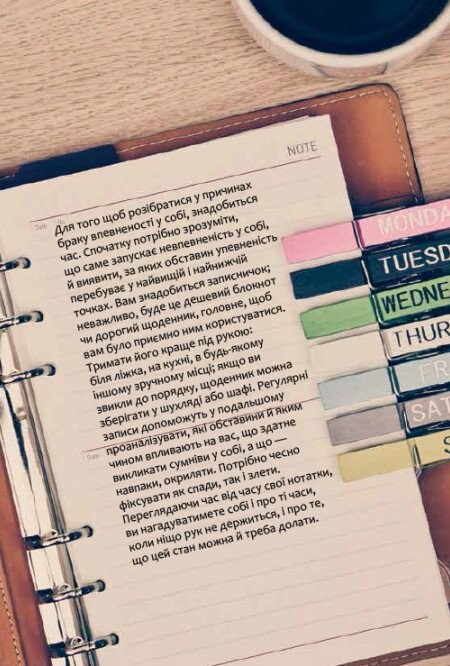 NOTE
Date
No.
Для того щоб розібратися у причинах
браку впевненості у собі, знадобиться
час. Спочатку потрібно зрозуміти,
що саме запускає невпевненість у собі,
й виявити, за яких обставин упевненість
перебуває у найвищій і найнижчій
точках. Вам знадобиться записничок;
неважливо, буде це дешевий блокнот
чи дорогий щоденник, головне, щоб
вам було приємно ним користуватися.
Тримати його краще під рукою:
біля ліжка, на кухні, в будь-якому
іншому зручному місці; якщо ви
звикли до порядку, щоденник можна
зберігати у шухляді або шафі. Регулярні
записи допоможуть у подальшому
проаналізувати, які обставини й яким
чином впливають на вас, що здатне
викликати сумніви у собі, а що —
навпаки, окриляти. Потрібно чесно
фіксувати як спади, так і злети.
Переглядаючи час від часу свої нотатки,
ви нагадуватимете собі і про ті часи,
коли ніщо рук не держиться, і про те,
що цей стан можна й треба долати.
Date
MONDA
TUESD
WEDNE
THUR
FR
SAT
S